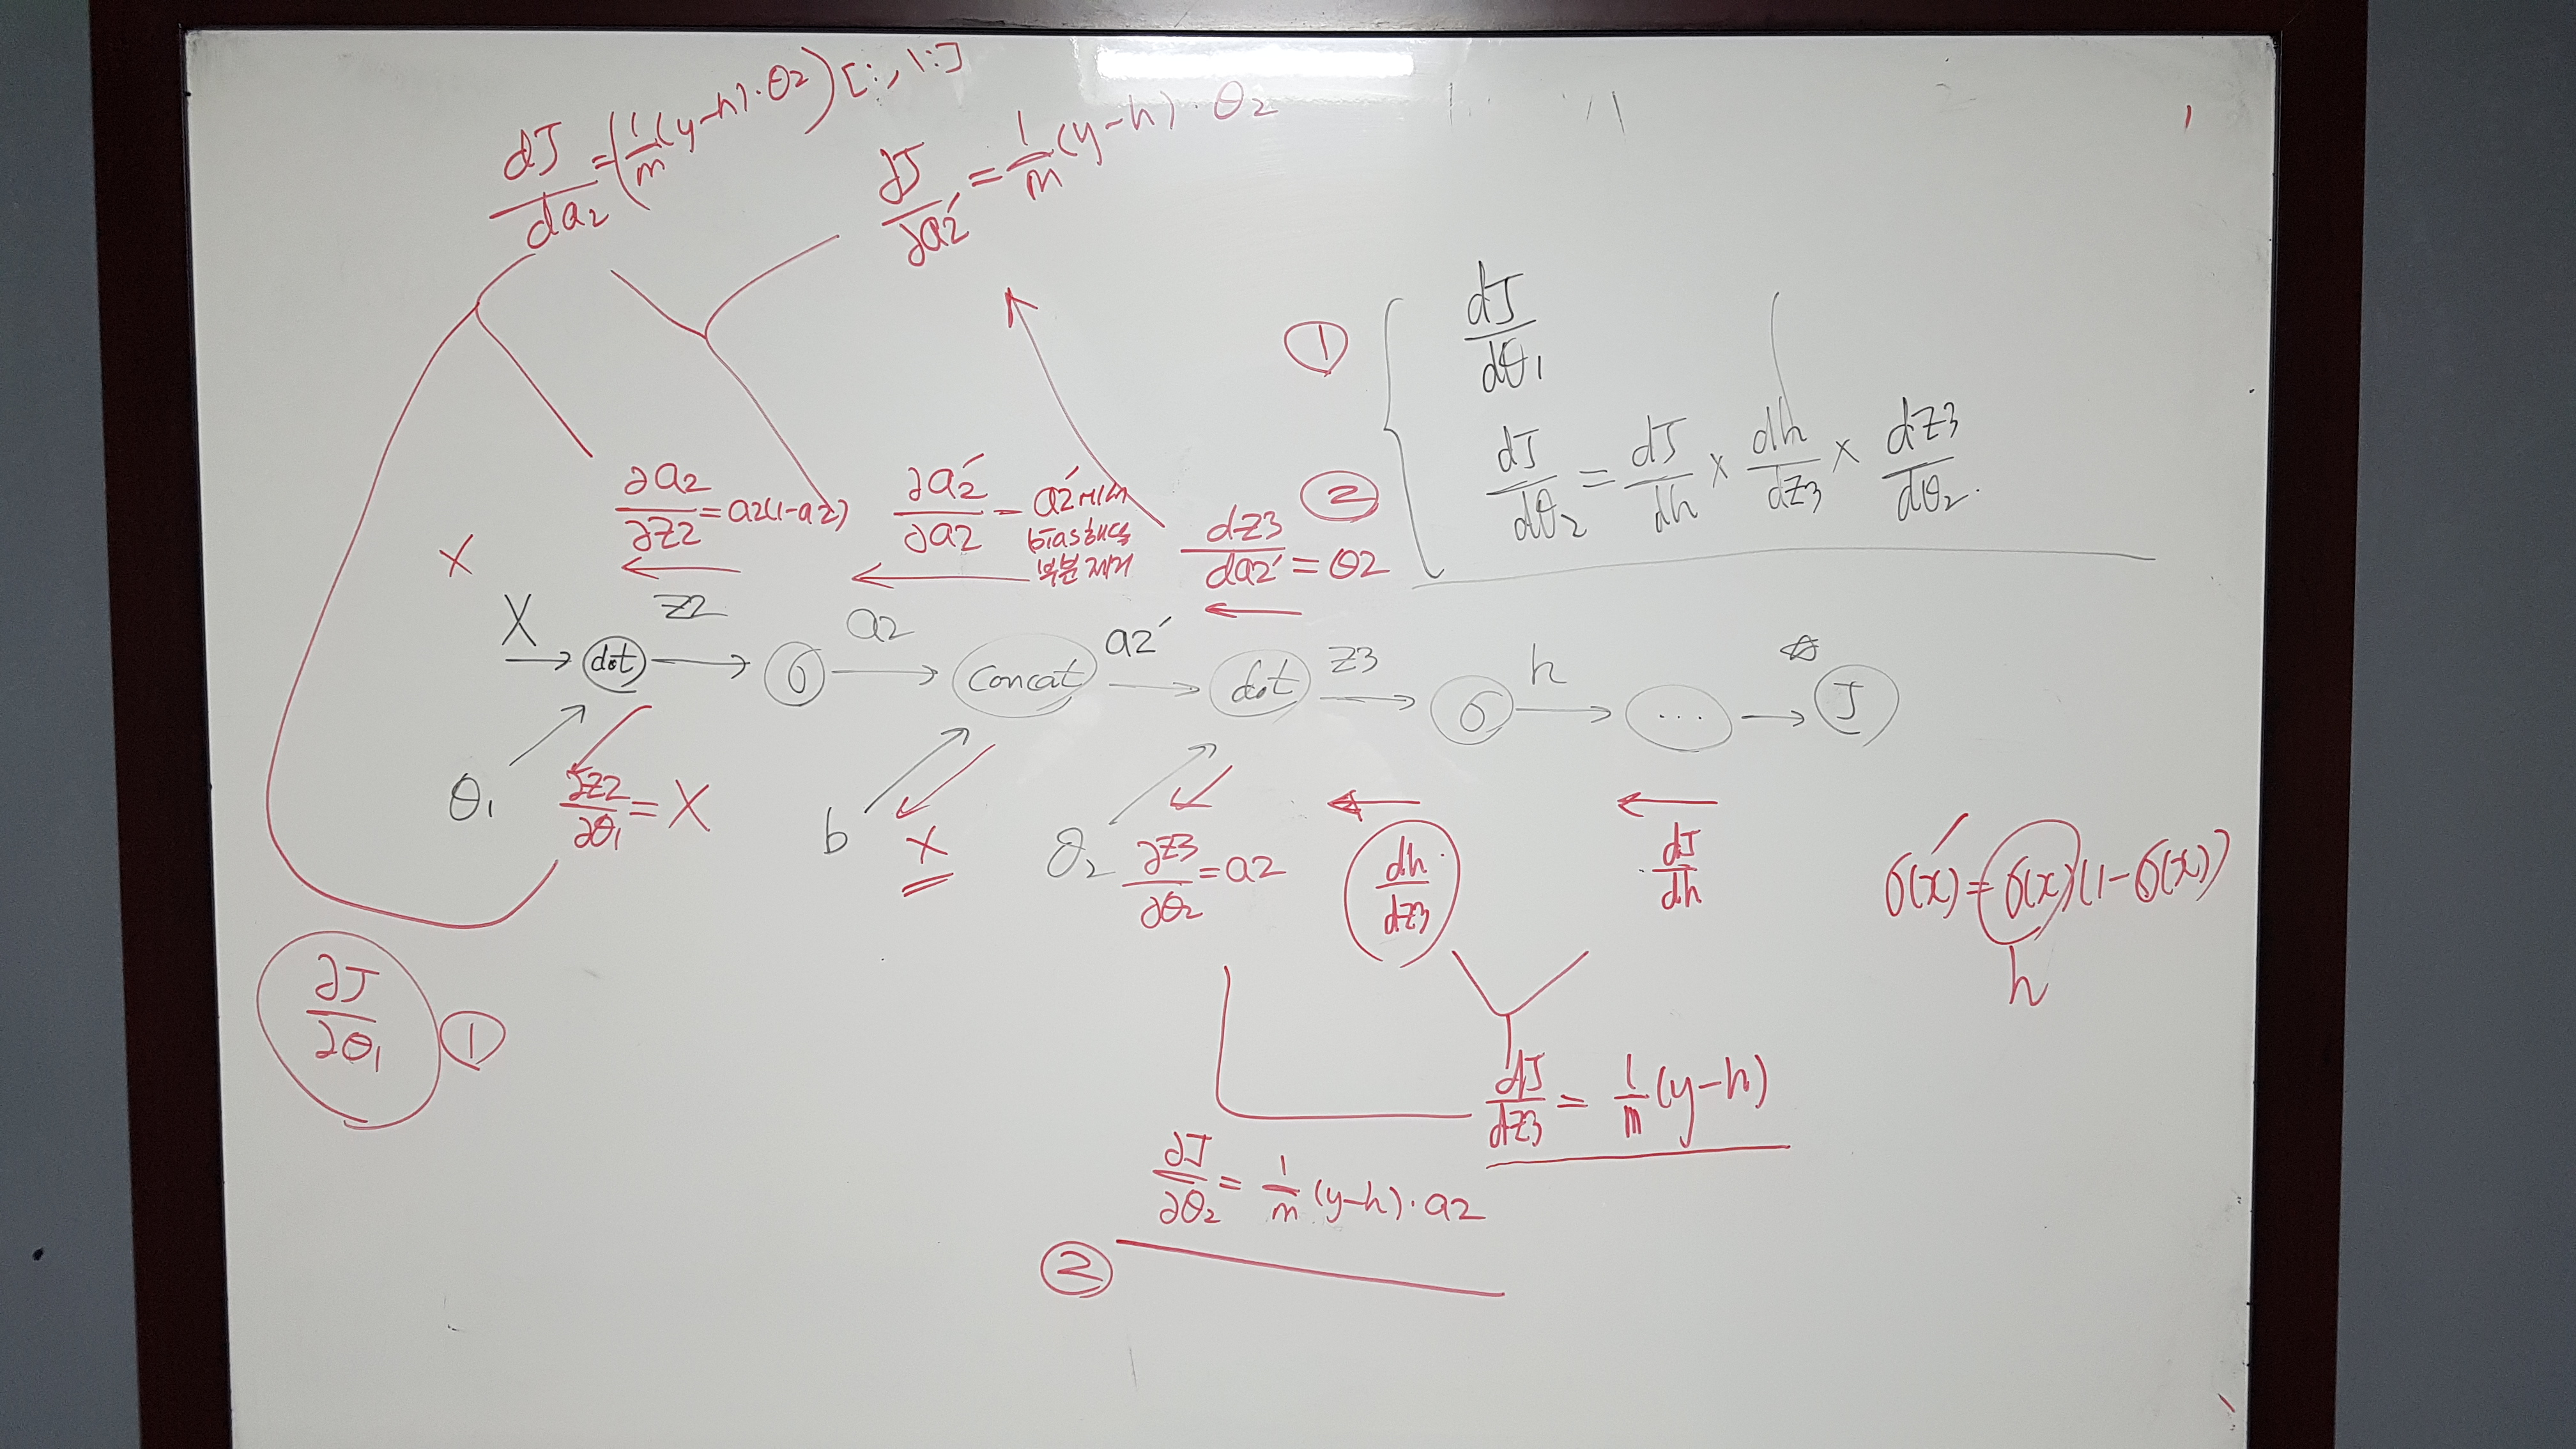 dJ/da2 = (1/m (y-h)·θ2)[:, 1:]
∂J/∂a2′ = 1/m (y-h)·θ2
①
dJ/dθ1
dJ/dθ2 = dJ/dh × dh/dz3 × dz3/dθ2.
∂a2/∂z2 = a2(1-a2)
∂a2′/∂a2 = a2′에서
bias해당
부분 제거
②
dz3/da2′ = θ2
X
X
z2
a2
a2′
z3
h
dot
σ
concat
dot
σ
...
J
θ1
∂z2/∂θ1 = X
b
X
θ2
∂z3/∂θ2 = a2
dh/dz3
dJ/dh
σ(x)′ = σ(x)(1-σ(x))
h
∂J/∂θ1
①
dJ/dz3 = 1/m (y-h)
∂J/∂θ2 = 1/m (y-h)·a2
②